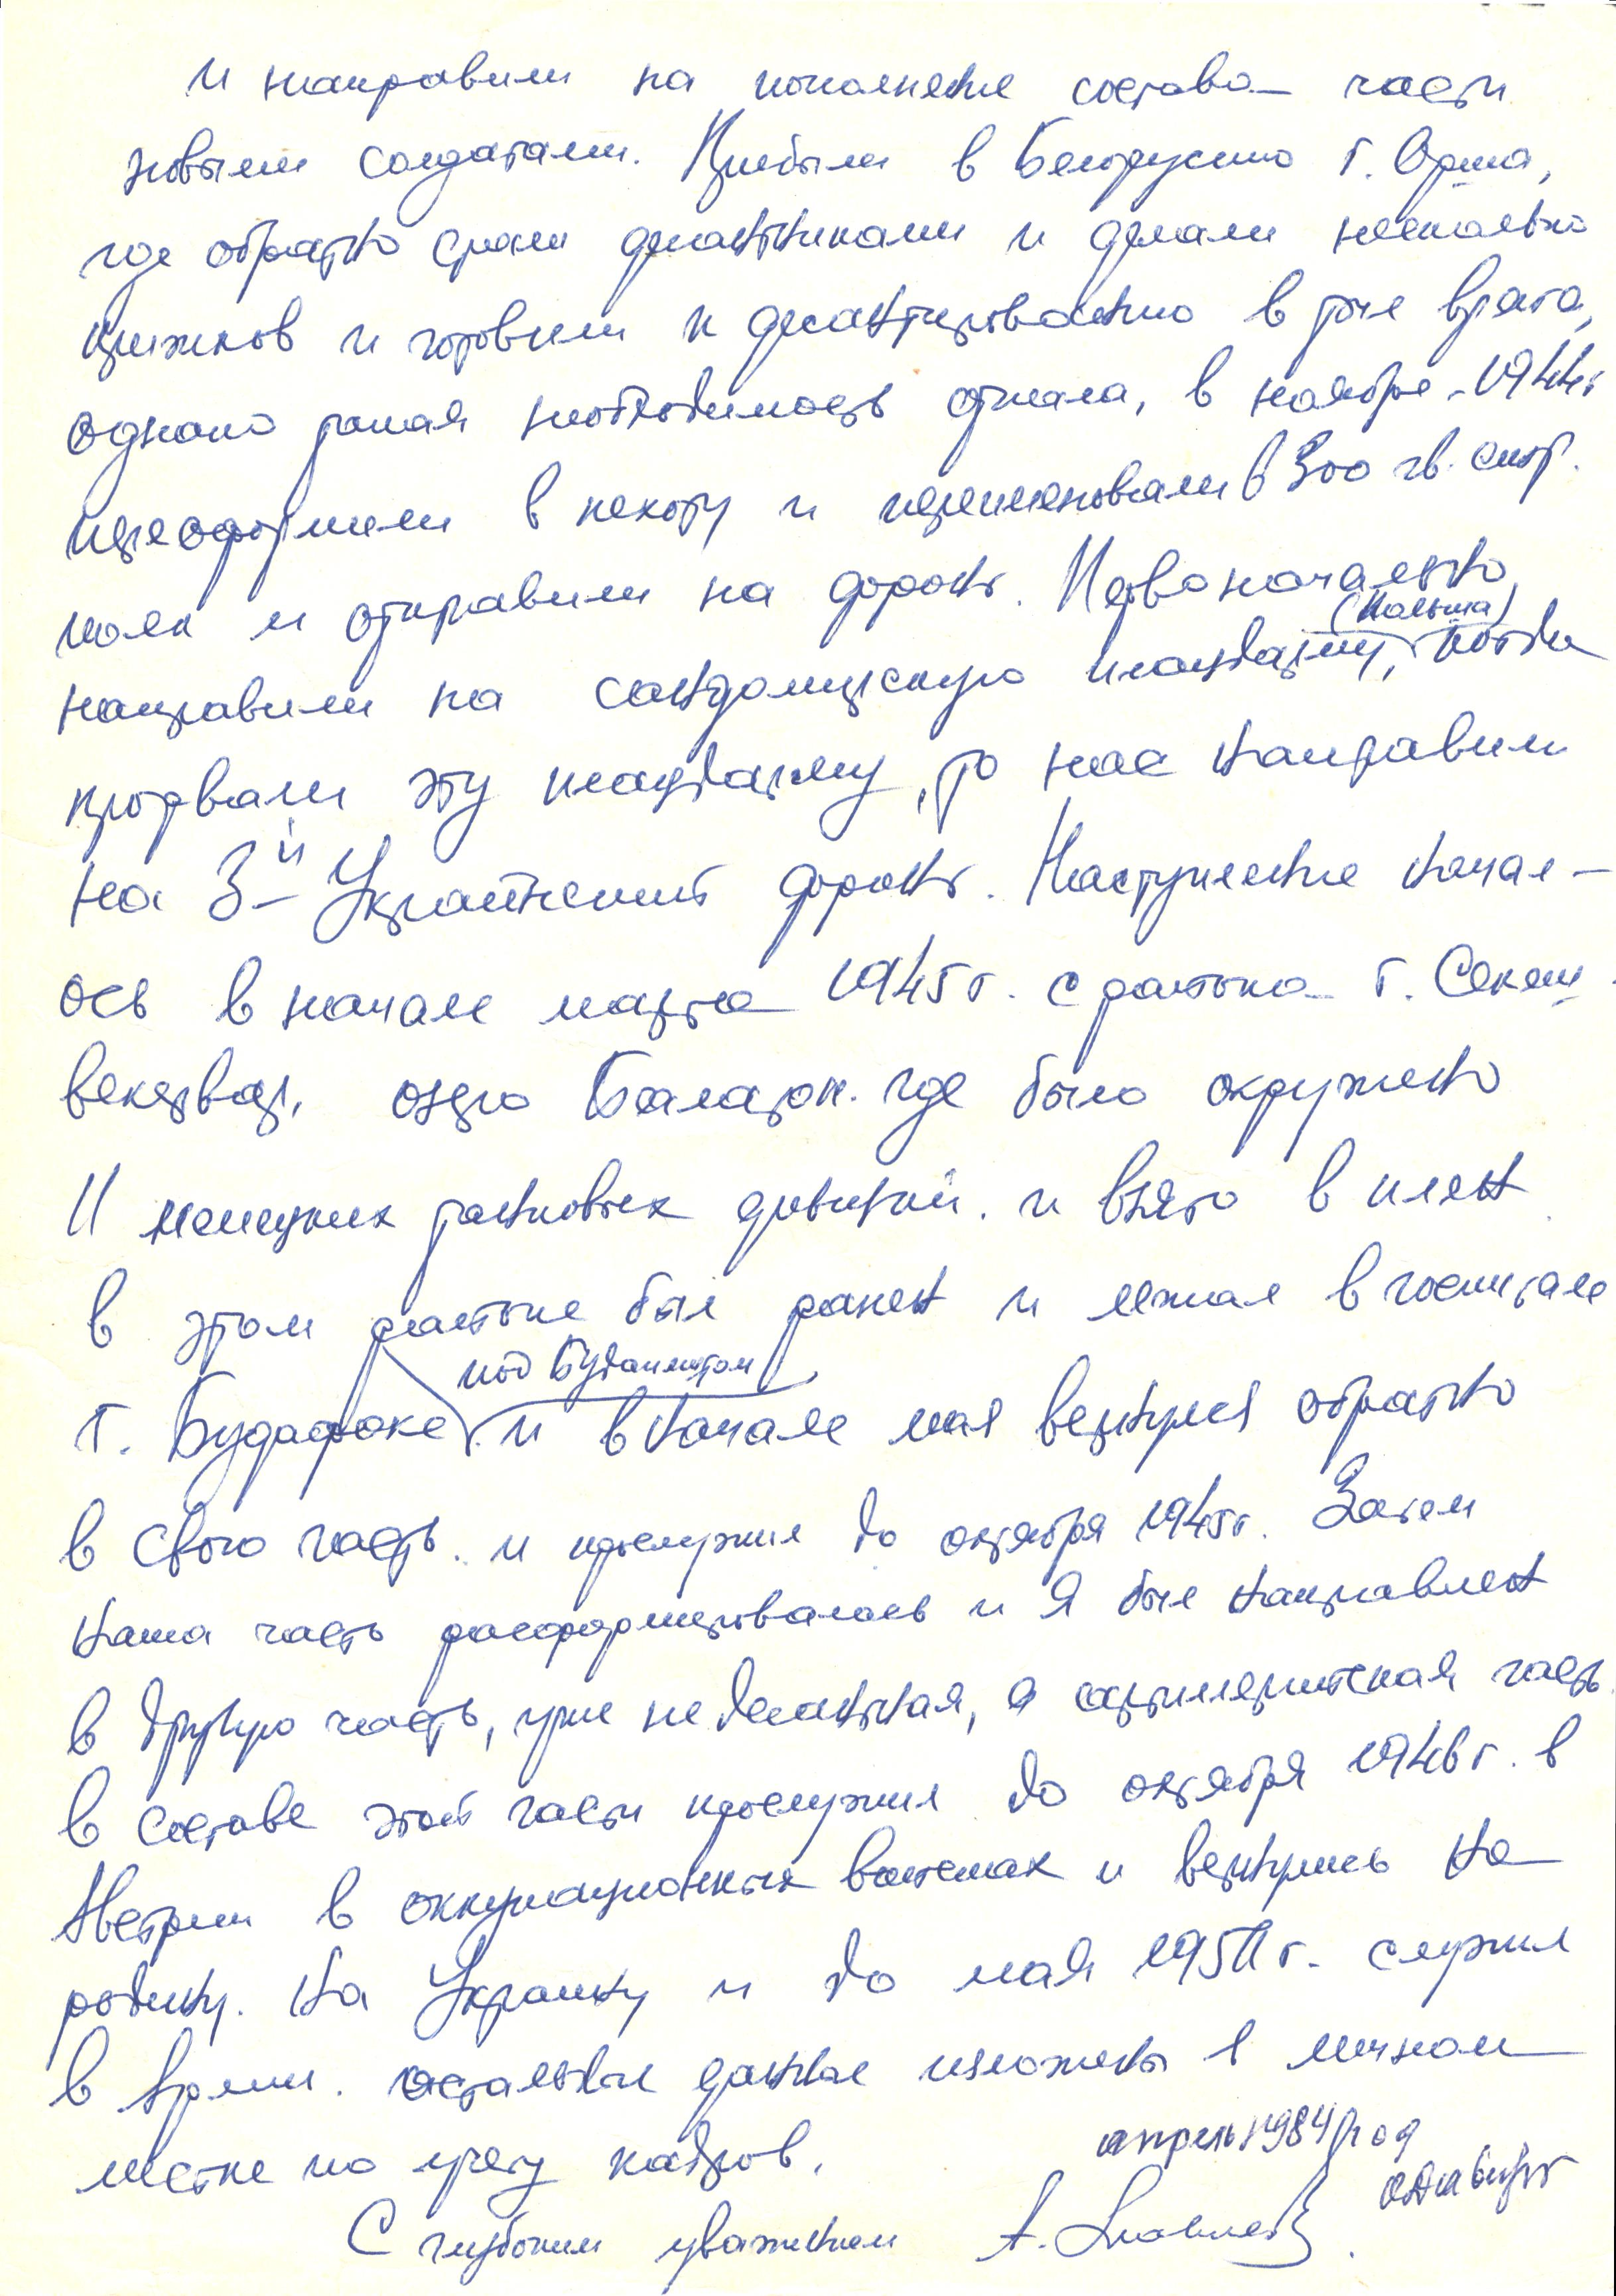 и направили на пополнение состава части
новыми солдатами. Прибыли в Белорусию г. Орша,
где обратно стали десантниками и делали несколько
прыжков и готовили к десантированию в тыл врага,
однако такая необходимость отпала, в ноябре 1944г
переоформили в пехоту и переименовали в 300 гв. стр.
полк и отправили на фронт. Первоначально
(Польша)
направили на сандомирскую плацдарму, когда
прорвали эту плацдарму, то нас направили
на 3-й Украинский фронт. Наступление начал-
ось в начале марта 1945г. с района г. Секеш-
векервар, озеро Балатон. где было окружено
11 немецких танковых дивизий. и взято в плен
в этом районе был ранен и лежал в госпитале
под Будапештом
г. Будафоке и в начале мая вернулся обратно
в свою часть. и прослужил до октября 1945г. Затем
наша часть расформировалась и я был направлен
в другую часть, уже не десантная, а артиллерийская часть.
в составе этой части прослужил до октября 1946г. в
Австрии в оккупационных войсках и вернулись на
родину. На Украину и до мая 1951г. служил
в Армии. остальные данные изложены в личном
листке по учету кадров.
апрель 1984 год
С глубоким уважением А.